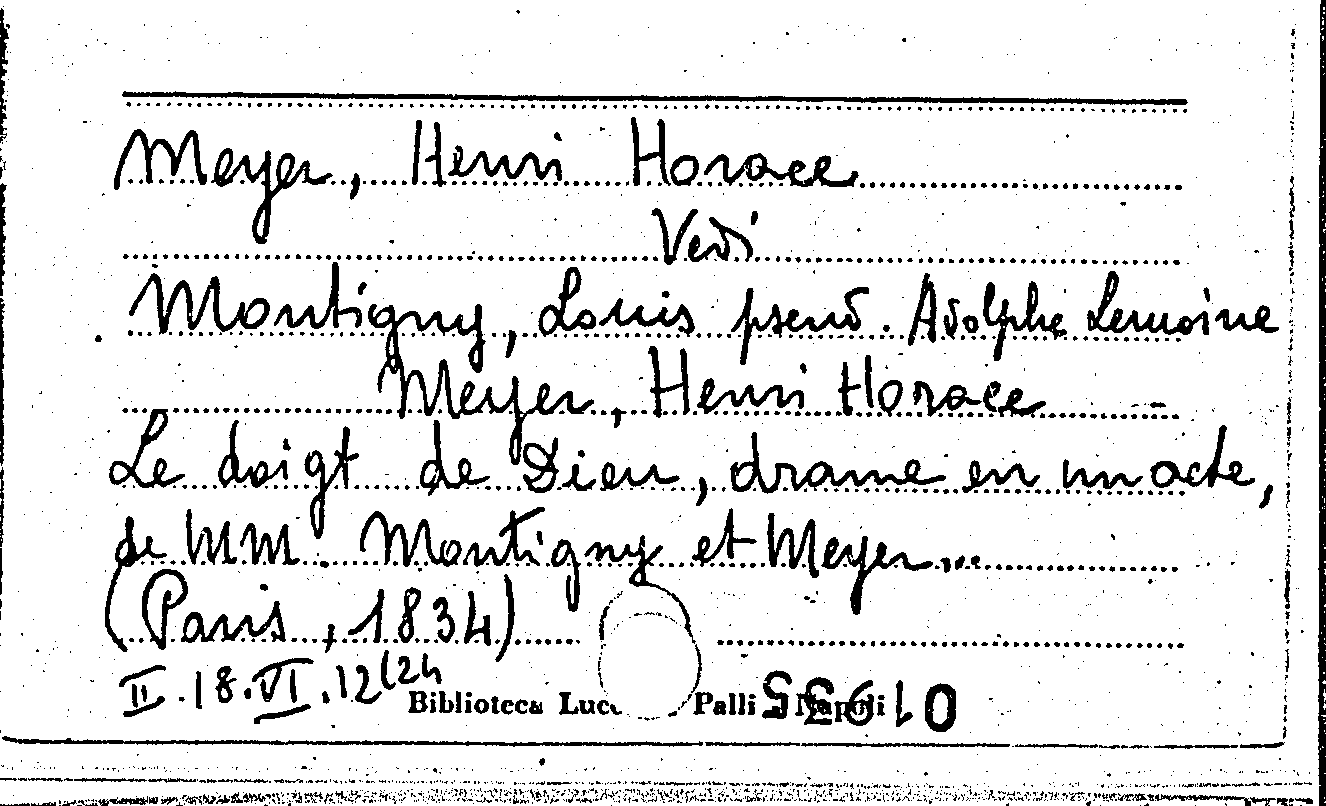 Meyer, Henri Horace
Vedi
Montigny, Louis pseud. Adolphe Lemoine
Meyer, Henri Horace -
Le doigt de Dieu, drame en un acte,
de MM. Montigny et Meyer...
(Paris, 1834)
II.18.VI.12(24
Biblioteca Palli Napoli